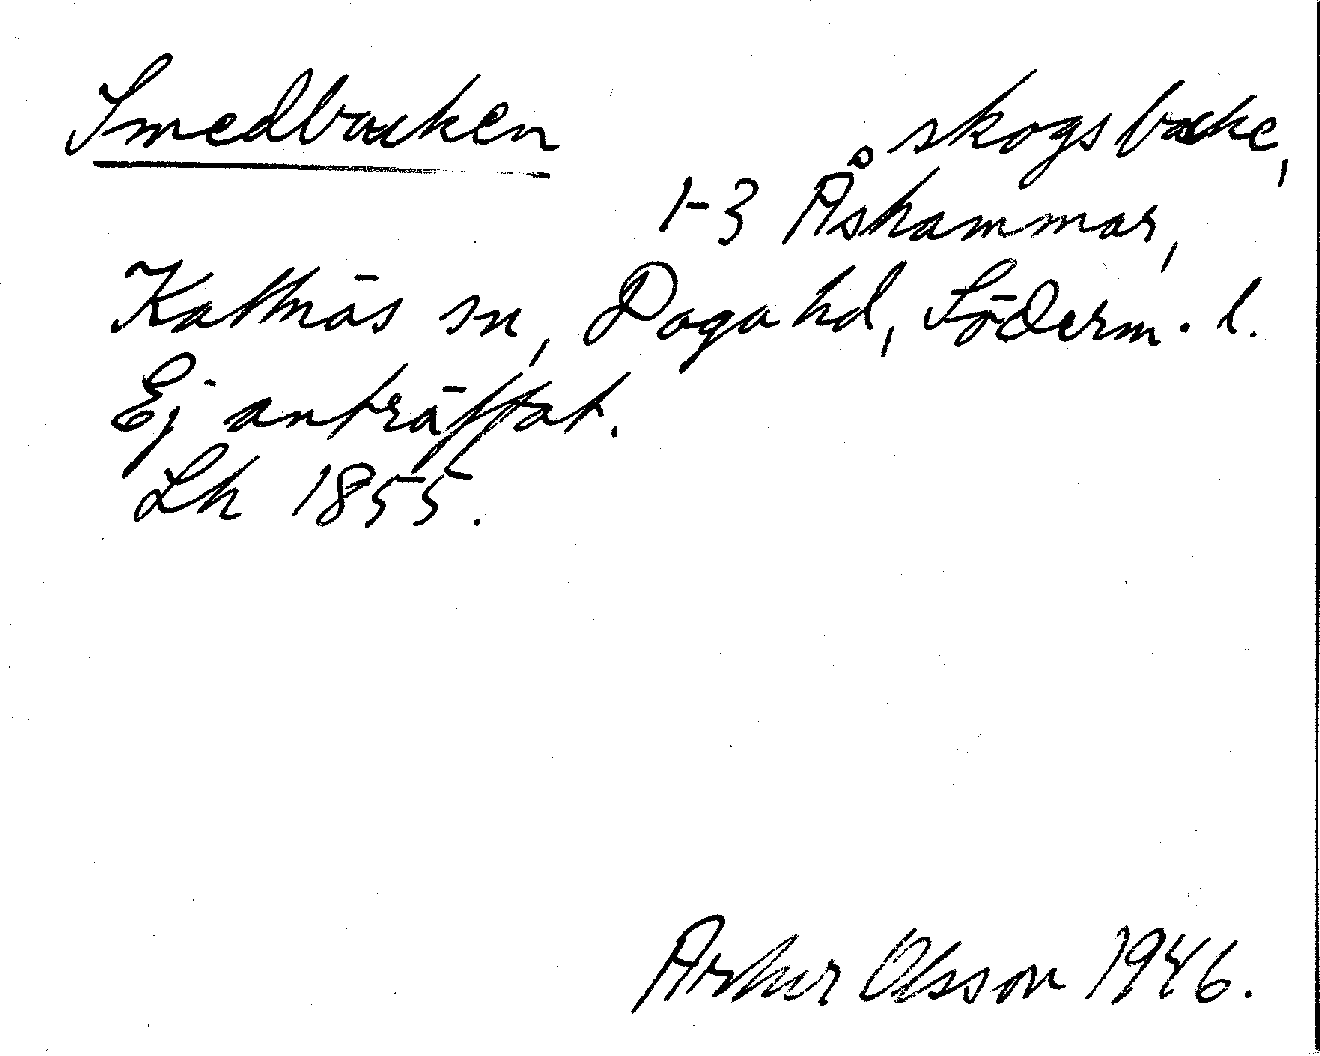 Smedbacken skogsbacke,
1-3 Åshammar,
Kattnäs sn, Daga hd, Söderm. l.
Ej anträffat.
Lh 1855.
Arthur Olsson 1946.